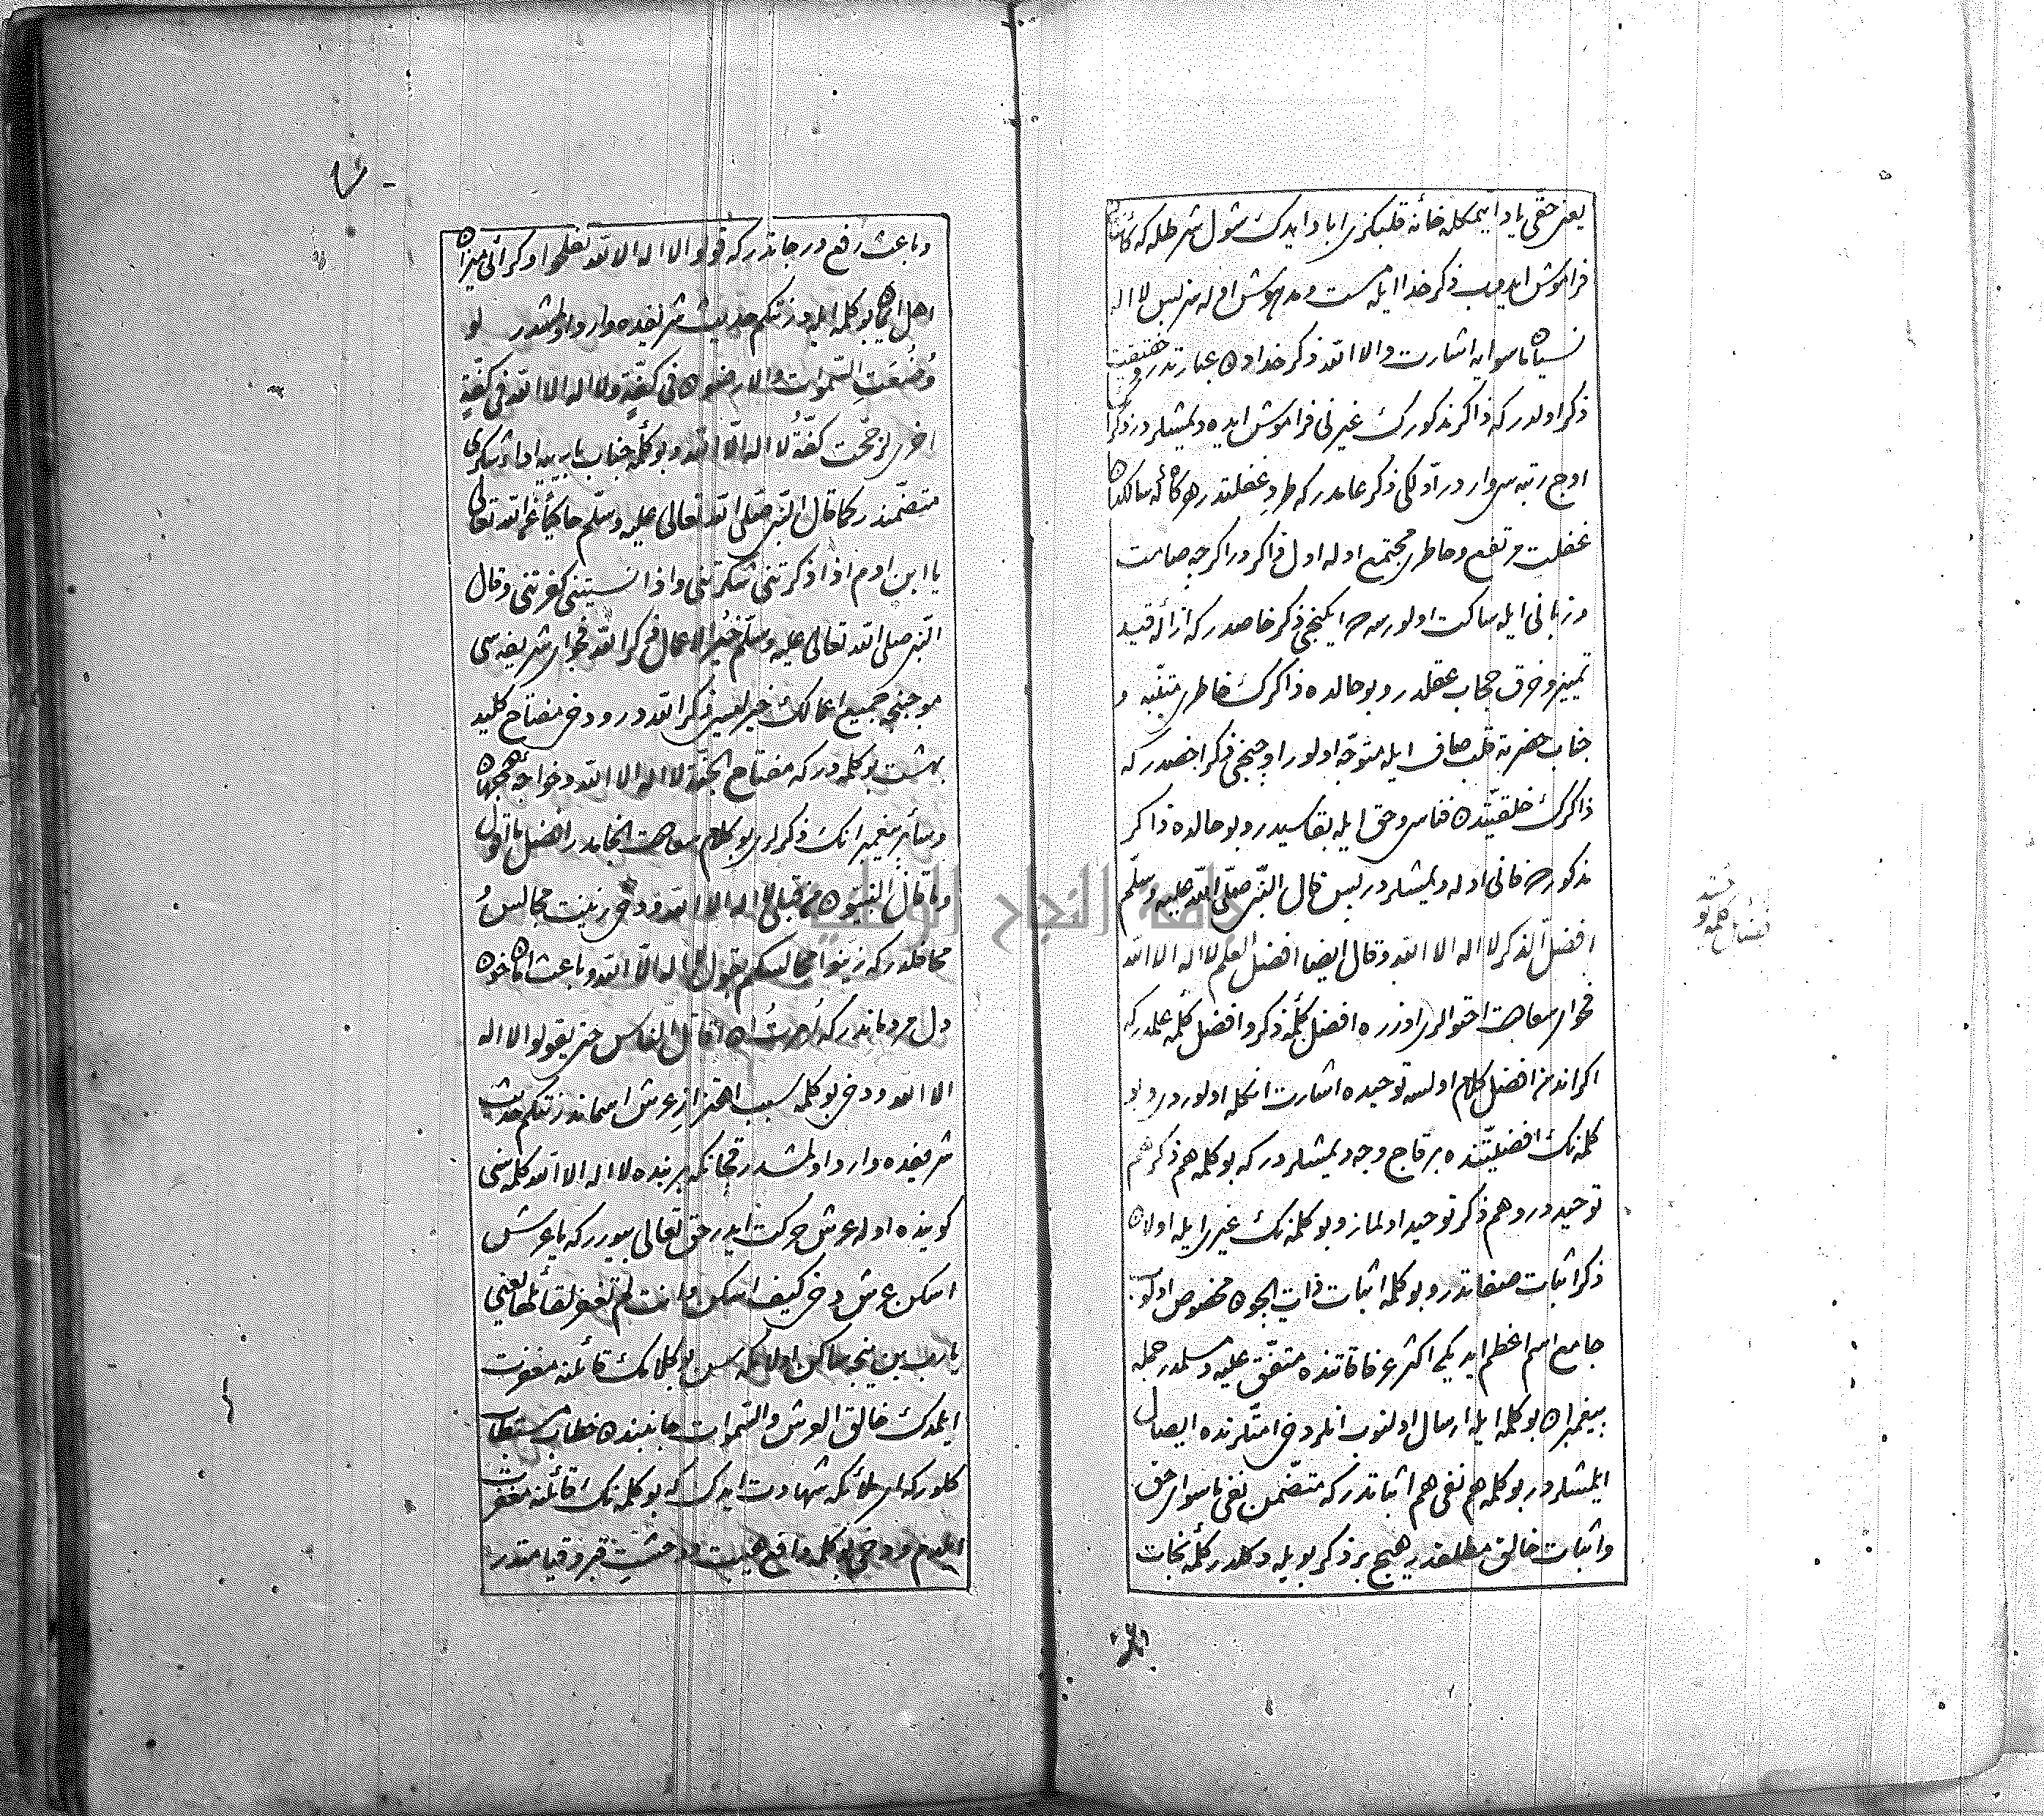 يعنى حقى ياد ايتمكله خانۀ قلبكزى اباد ايدك شول شرطله كه كائناتى
فراموش ايدوب ذكر خدا ايله مست ومدهوش اوله سز پس لا اله
نسيان ماسوايه اشارت والا الله ذكر خدادن عبارتدر وحقيقت
ذكر اولدر كه ذاكر مذكورك غيرنى فراموش ايده ديمشلردر وذكرك
اوچ رتبه سى واردر اولكى ذكر عامدر كه طرد غفلتدر هركاه كه سالكدن
غفلت مرتفع وخاطرى مجتمع اوله اول ذاكردر اكرچه صامت
وزبانى ايله ساكت اولورسه ايكنجى ذكر خاصدر كه ازالۀ قيد
تمييز وخرق حجاب عقلدر وبو حالده ذاكرك خاطرى متنبه و
جناب حضرته قلب صاف ايله متوجه اولور اوچنجى ذكر اخصدر كه
ذاكرك خلقيتندن فناسى وحق ايله بقاسيدر وبو حالده ذاكر
مذكورده فانى اوله ديمشلردر پس قال النبى صلى الله عليه وسلم
افضل الذكر لا اله الا الله وقال ايضا افضل العلم لا اله الا الله
فحواى سعادت احتوالرى اوزره افضل كلمۀ ذكر وافضل كلمۀ علمدر كه
اكر اندن افضل كلام اولسه توحيده اشارت انكله اولوردى وبو
كلمه نك افضليتنده برقاچ وجه ديمشلردر كه بو كلمه هم ذكر هم
توحيددر وهم ذكر توحيد اولماز وبو كلمه نك غيرى ايله اولان
ذكر اثبات صفاتدر وبو كلمه اثبات ذات ايچون مخصوص اولوب
جامع اسم اعظم ايدكى اكثر عرفا قاتنده متفق عليه ومسلمدر جمله
پيغمبران بو كلمه ايله ارسال اولنوب انلر دخى امتلرنده ايصال
ايلمشلردر بو كلمه هم نفى هم اثباتدر كه متضمن نفى ماسواى حق
واثبات خالق مطلقدر هيچ بر ذكر بويله دكلدر كلمۀ نجات
وباعث رفع درجاتدر كه قولوا لا اله الا الله تفلحوا وكرانى ميزان
اهل ايمان بو كلمه ايله در نتكم حديث شريفده وارد اولمشدر لو
وضعت السموات والارضون فى كفة ولا اله الا الله فى كفة
اخرى لرجحت كفة لا اله الا الله وبو كلمه جناب باريه ادا وشكرى
متضمندر كما قال النبى صلى الله تعالى عليه وسلم حاكيا عن الله تعالى
يا ابن ادم اذا ذكرتنى شكرتنى واذا نسيتنى كفرتنى وقال
النبى صلى الله تعالى عليه وسلم خير الاعمال ذكر الله فحواى شريفه سى
موجبنجه جميع اعمالك خيرليسى ذكر الله در ودخى مفتاح كليد
بهشت بو كلمه در كه مفتاح الجنة لا اله الا الله وخواجۀ هر جهان
وسائر پيغمبرانك ذكرلرى بو كلام سعادت انجامدر افضل ما اقول
وما قال النبيون من قبلى لا اله الا الله ودخى زينت مجالس
محافلدر كه زينوا مجالسكم بقول لا اله الا الله وباعث امان خون
دل مردماندر كه امرت ان اقاتل الناس حتى يقولوا لا اله
الا الله ودخى بو كلمه سبب اهتزاز عرش اسماندر نتكم حديث
شريفده وارد اولمشدر قچانكه بر بنده لا اله الا الله كلمه سنى
كوينده اوله عرش حركت ايدر حق تعالى بيورر كه يا عرش
اسكن عرش دخى كيف اسكن وانت لم تغفر لقائلها يعنى
يارب بن نيجه ساكن اولايمكه سن بو كلامك قائلنه مغفرت
ايلمدك خالق العرش والسموات جانبندن خطاب مستطاب
كلور كه اى ملائكه شهادت ايدك كه بو كلمه نك قائلنه مغفرت
ايلدم ودخى بو كلمه دافع هيبت ووحشت قبر وقيامتدر